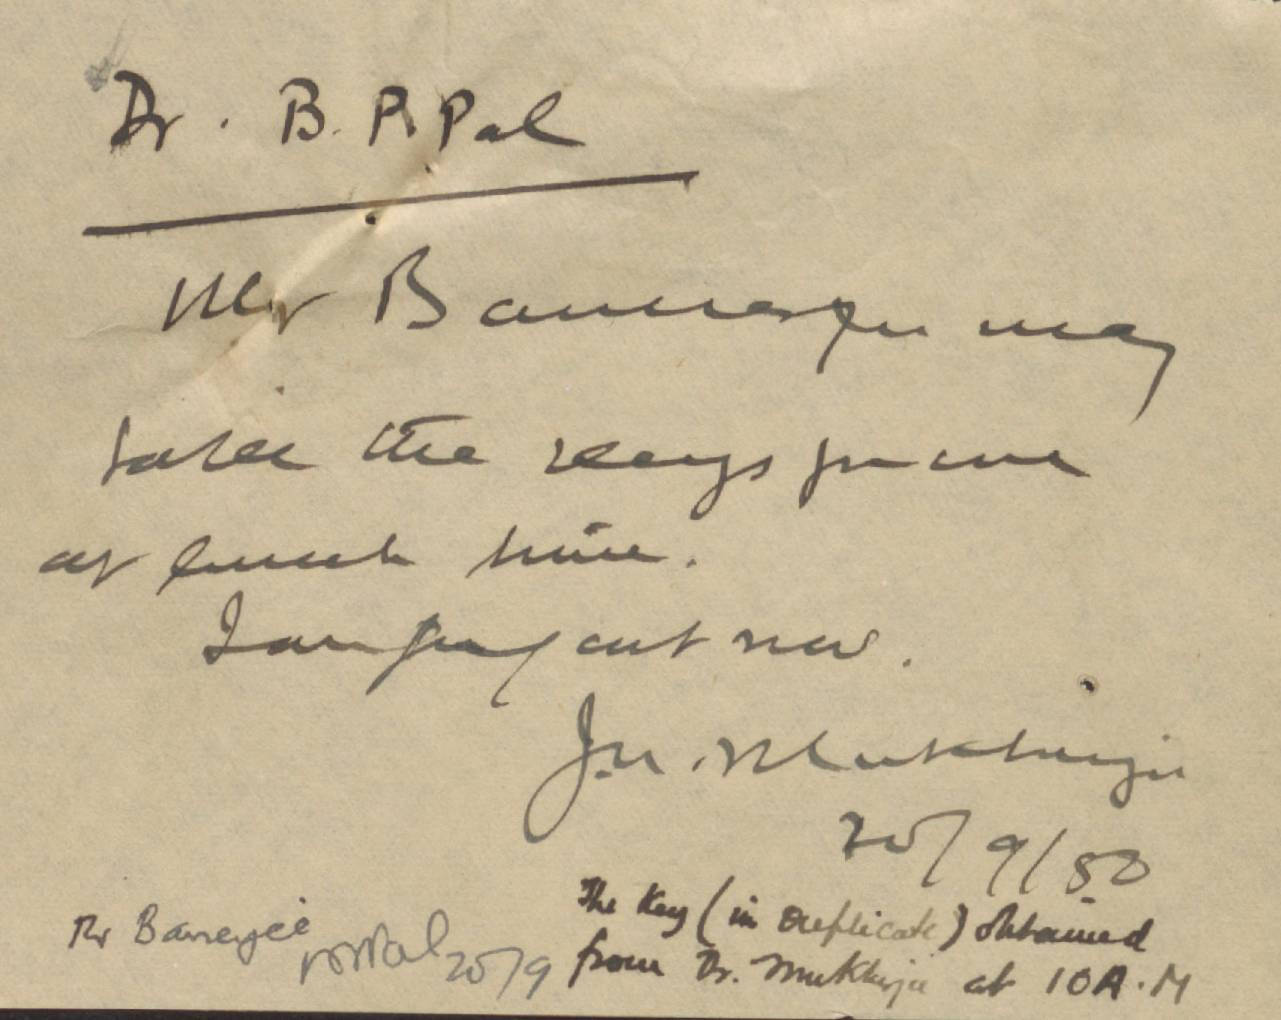 Dr. B. P. Pal
Mr Bannerjee may
take the keys from me
at lunch time.
I am going out now.
J.N. Mukherjee
20/9/50
Mr Banerjee
BPPal 20/9
The Key (in duplicate) obtained
from Dr. Mukherjee at 10 A.M